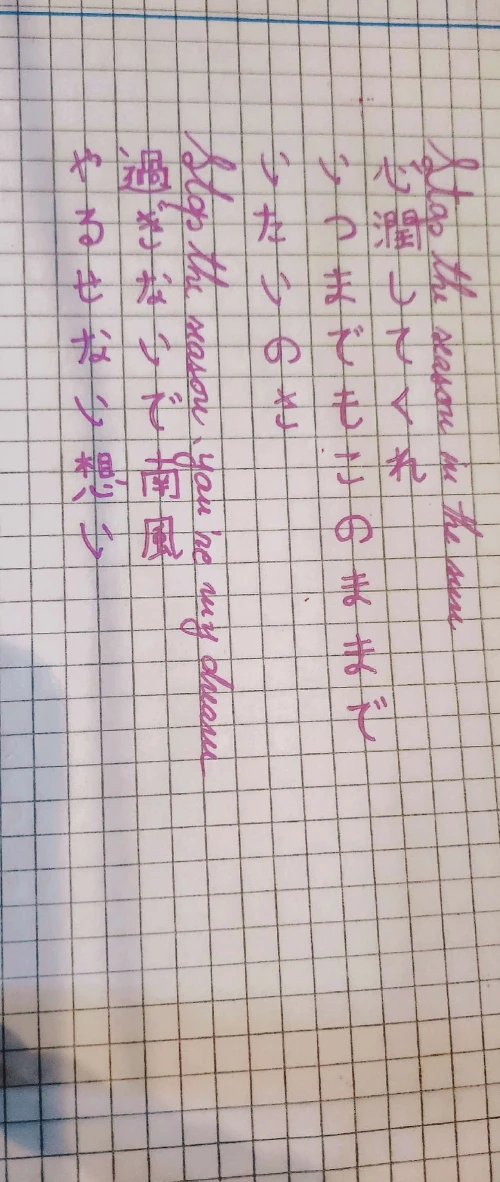 Stop the season in the sun
心潤してくれ
いつまでもこのままで
いたいのさ
Stop the season, you're my dream
過ぎないで南風
やるせない想い